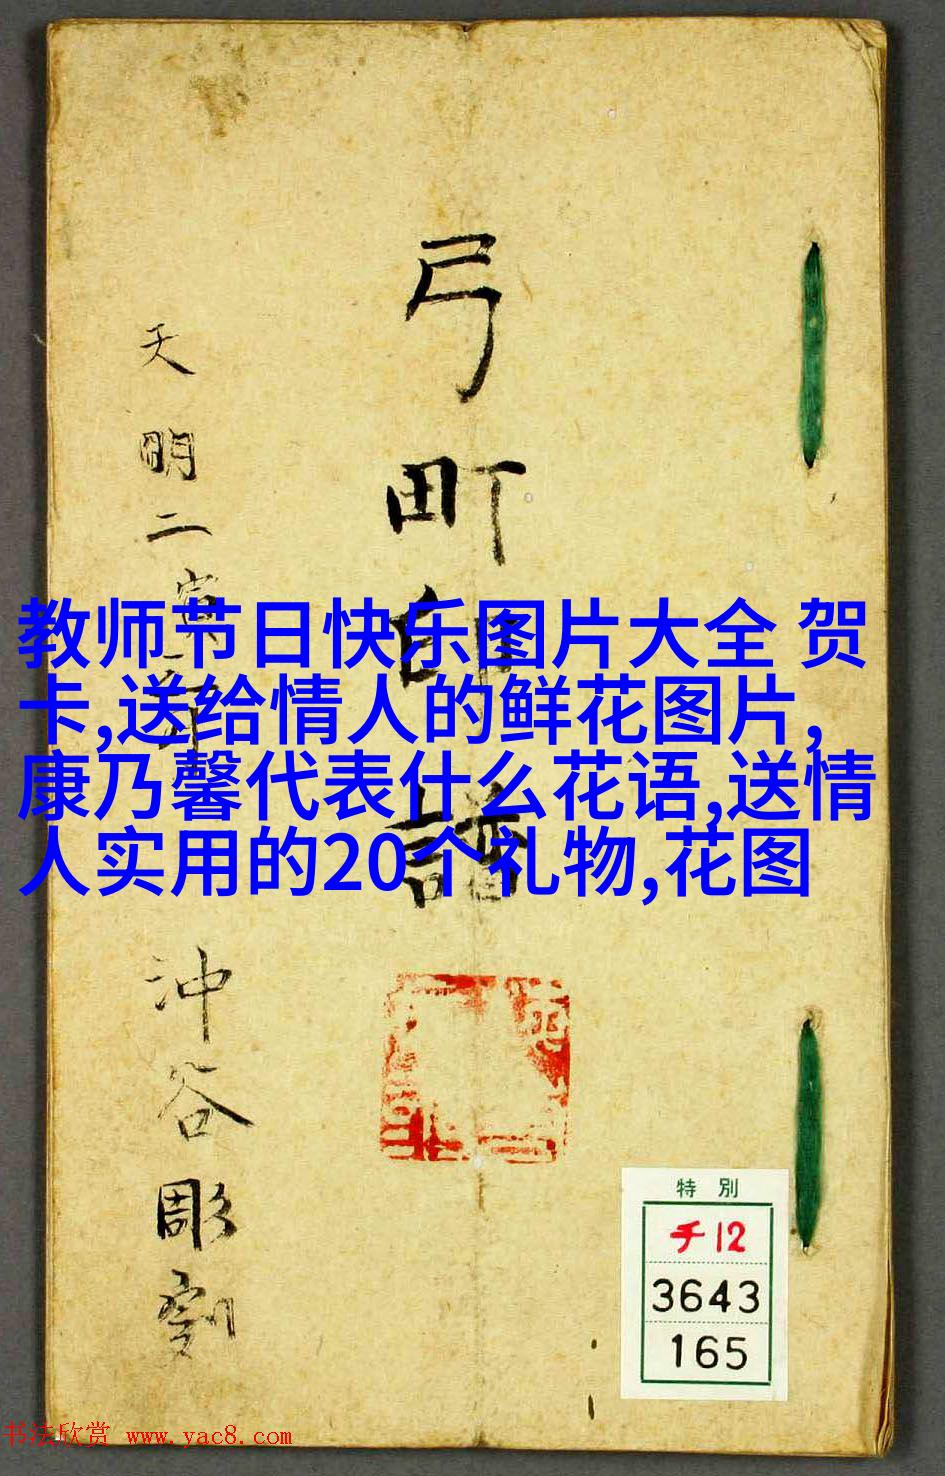 弓町印譜
天明二寅年
沖谷彫刻
教师节日快乐图片大全 贺
卡,送给情人的鲜花图片,
康乃馨代表什么花语,送情
人实用的20个礼物,花图
特別
チ12
3643
165
书法欣赏 www.yac8.com